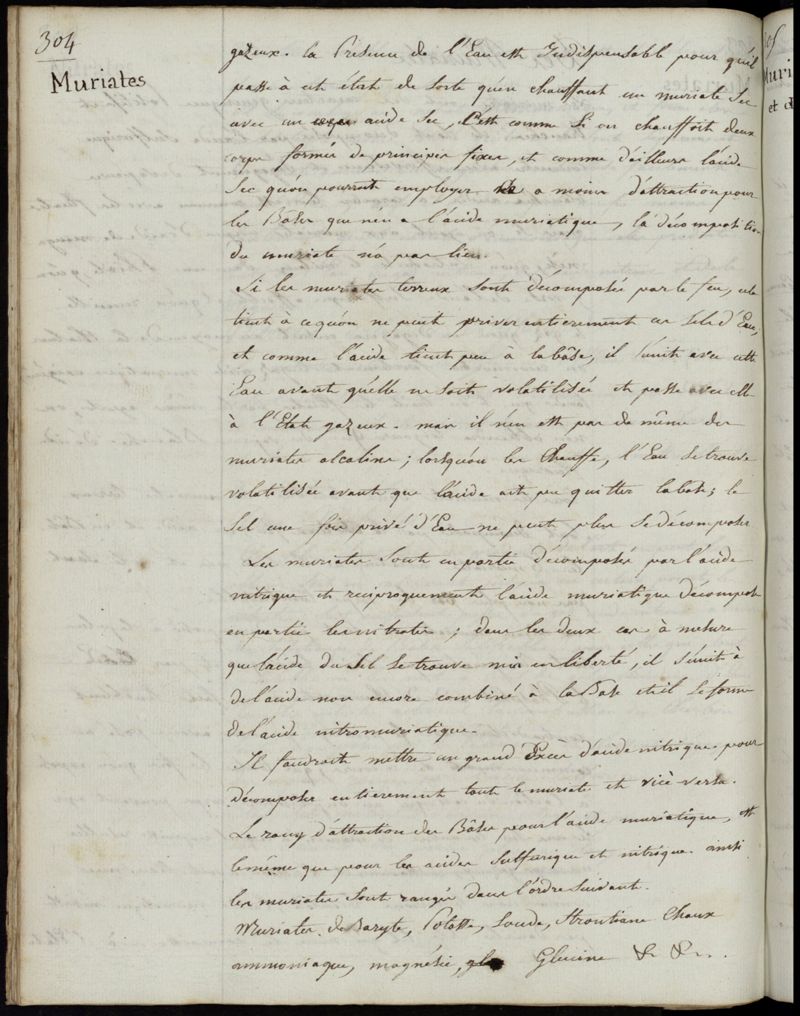 304
Muriates
gazeux. la Présence de l'Eau est Indispensable pour qu'il
passe à cet état de sorte qu'en chauffant un muriate sec
avec un acide sec, c'est comme si on chauffoit deux
corps formés de principes fixes, et comme d'ailleurs l'acide
sec qu'on pourroit employer a moins d'attraction pour
les Bases que n'en a l'acide muriatique, la décomposition
du muriate n'a pas lieu.
Si les muriates terreux sont décomposés par le feu, cela
tient à ce qu'on ne peut priver entierement ces sels d'Eau,
et comme l'acide tient peu à la bâse, il s'unit avec cette
Eau avant qu'elle ne soit volatilisée et passe avec elle
à l'Etat gazeux. mais il n'en est pas de même des
muriates alcalins; lorsqu'on les chauffe, l'Eau se trouve
volatilisée avant que l'acide ait pu quitter la base; le
sel une fois privé d'Eau ne peut plus se décomposer
Les muriates sont en partie décomposés par l'acide
nitrique et reciproquement l'acide muriatique décompose
en partie les nitrates; dans les deux cas à mesure
que l'acide du sel se trouve mis en liberté, il s'unit à
de l'acide non encore combiné à la Base et il se forme
de l'acide nitromuriatique.
Il faudroit mettre un grand Excès d'acide nitrique pour
décomposer entierement tout le muriate et vicè versa.
Le rang d'attraction des Bâses pour l'acide muriatique, est
le même que pour les acides sulfurique et nitrique. ainsi
les muriates sont rangés dans l'ordre suivant.
Muriates de Baryte, Potasse, soude, strontiane Chaux
ammoniaque, magnésie, Glucine &c &c.
Muri
et d